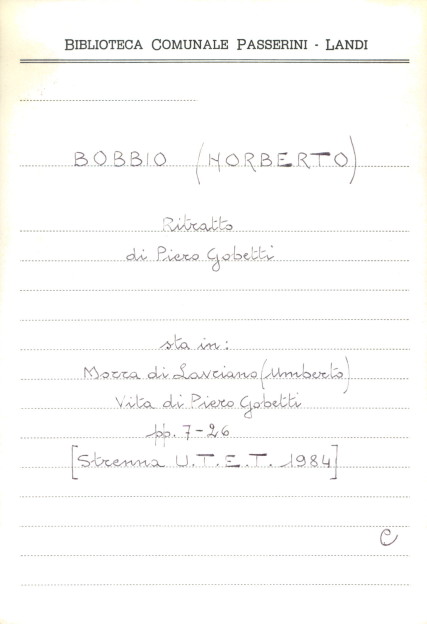 BIBLIOTECA COMUNALE PASSERINI - LANDI
BOBBIO (NORBERTO)
Ritratto
di Piero Gobetti
sta in:
Morra di Lavriano (Umberto)
Vita di Piero Gobetti
pp. 7-26
[Strenna U.T.E.T. 1984]
C